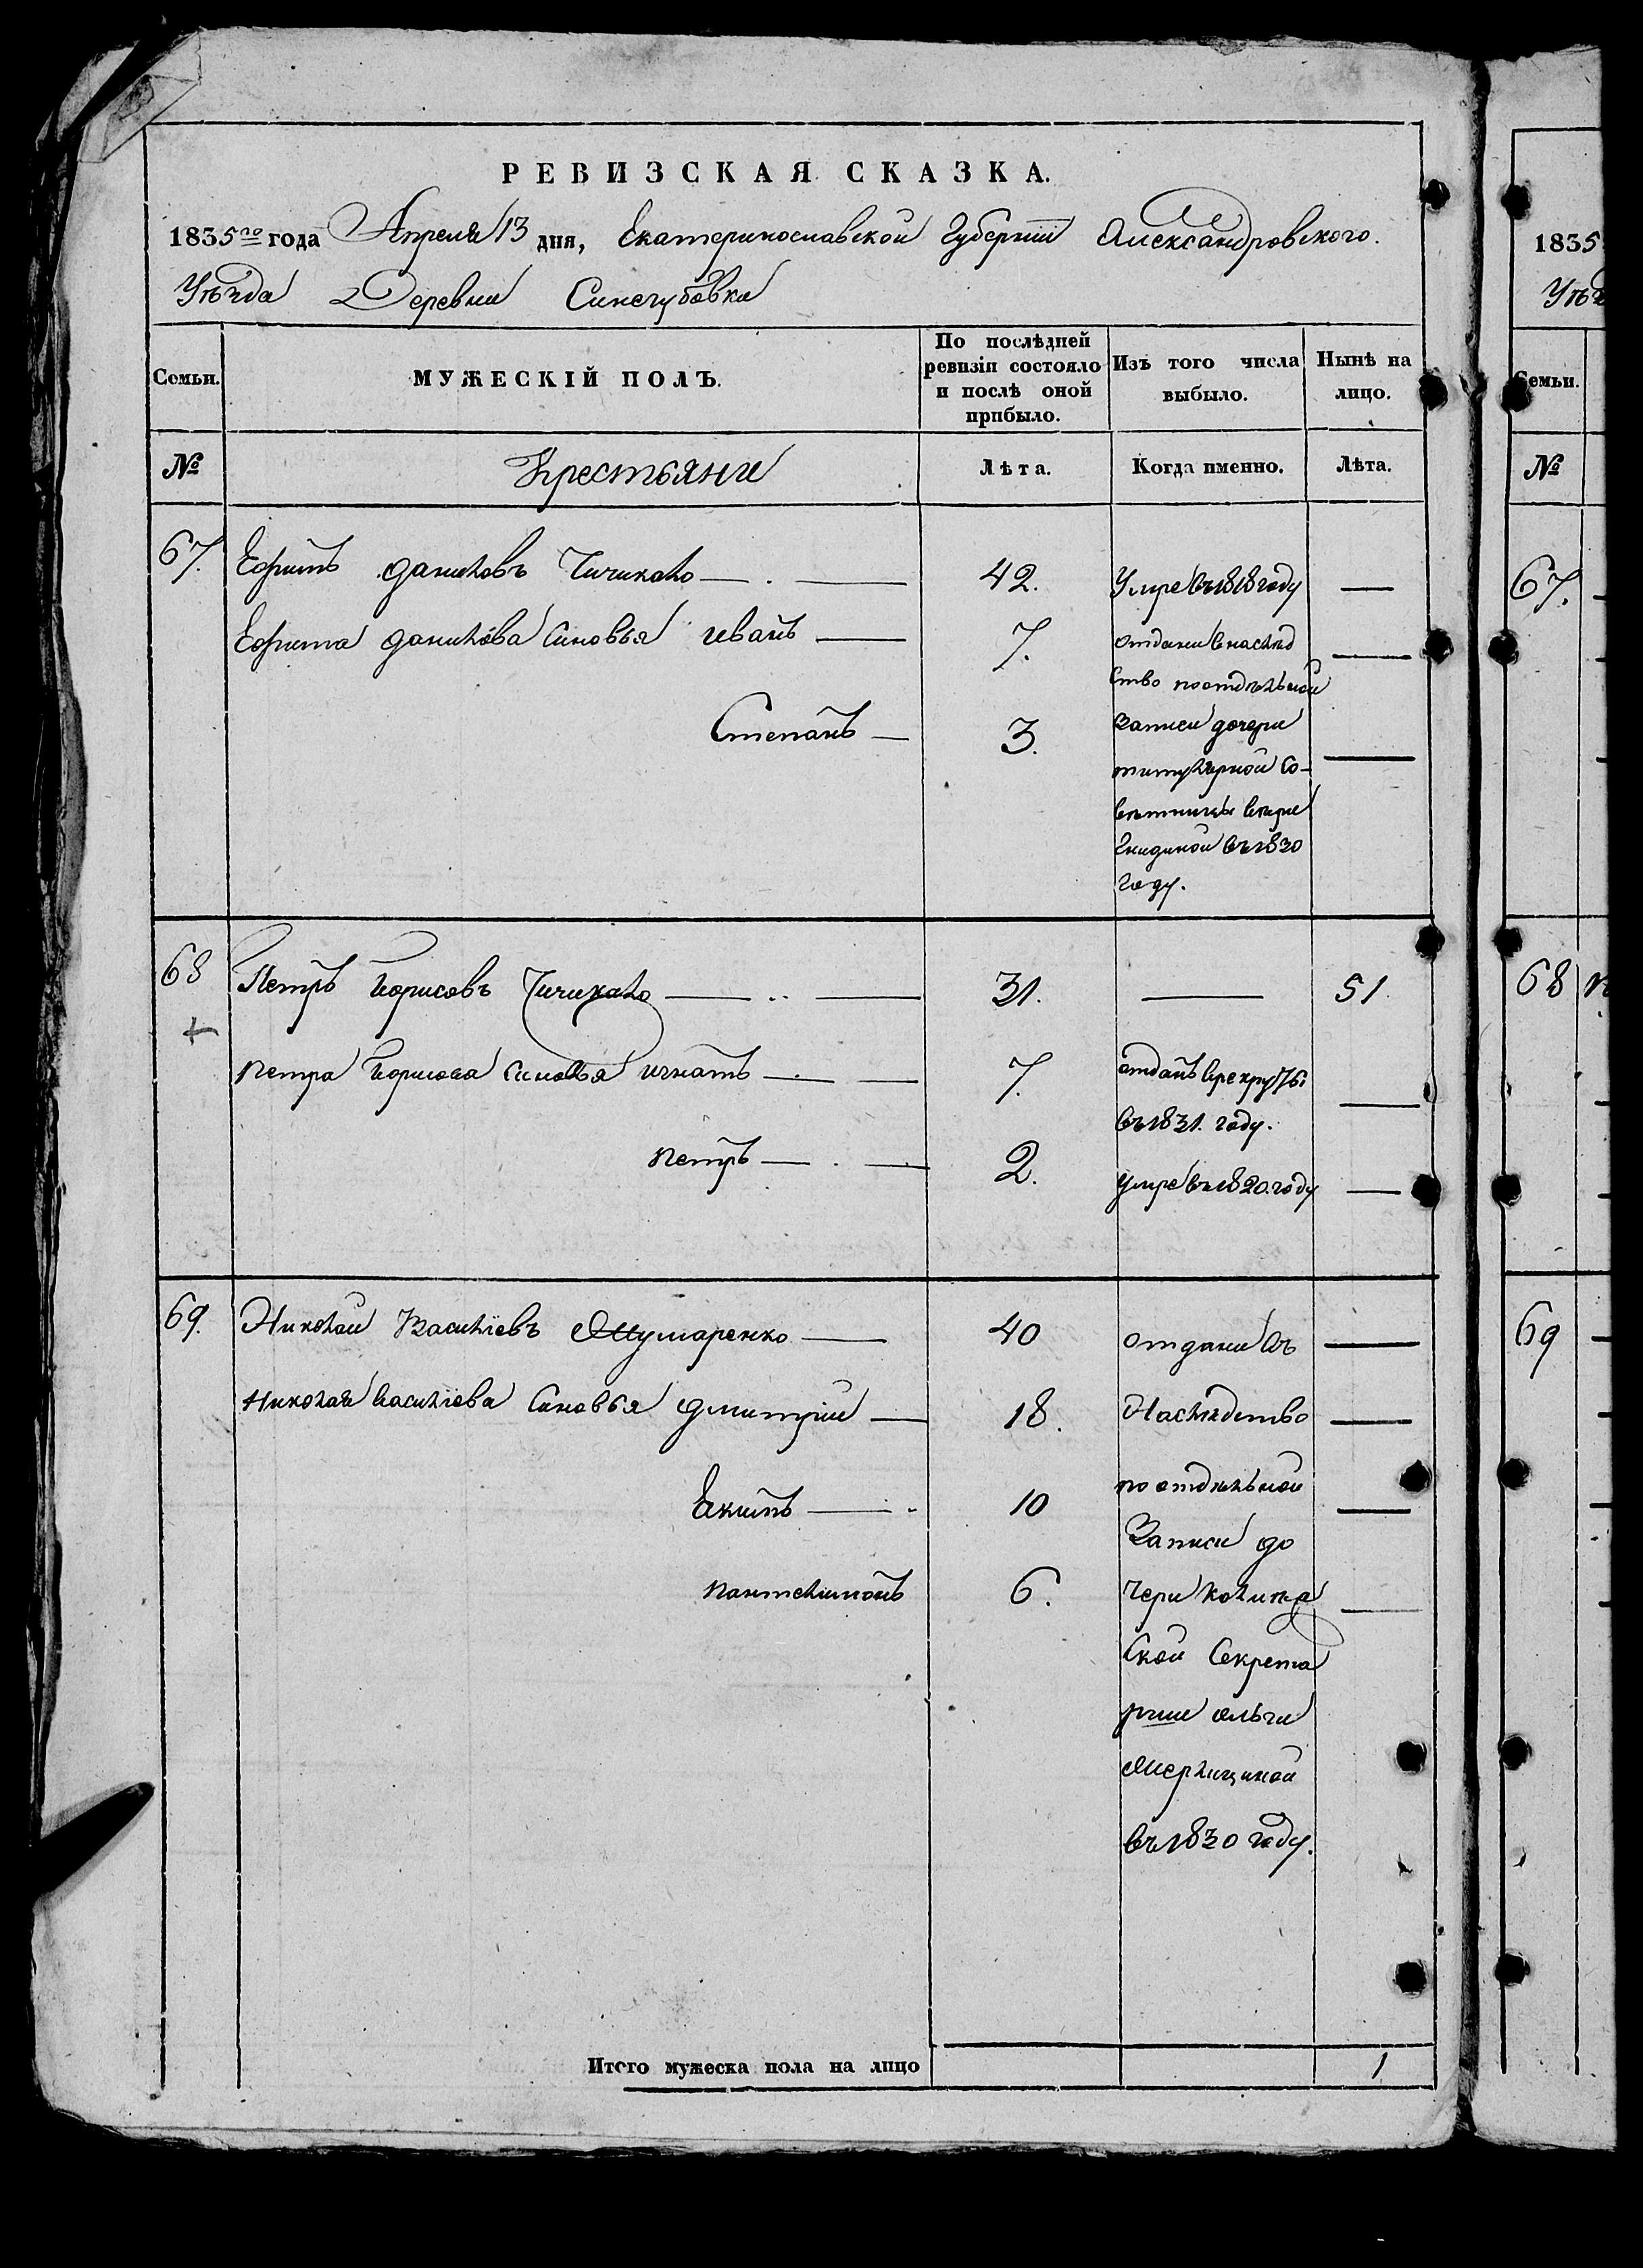 РЕВИЗСКАЯ СКАЗКА.
1835го года Апреля 13 дня, Екатеринославской Губернїи Александровского.
Уѣзда Деревни Синегубовки
Семьи. МУЖЕСКІЙ ПОЛЪ. По послѣдней ревизіи состояло и послѣ оной прибыло. Изъ того числа выбыло. Нынѣ на лицо.
№ Крестьяне Лѣта. Когда именно. Лѣта.
67. Ефимъ даниловъ Чичикало 42. Умре въ 1818 году —
Ефима данилова Сыновья иванъ 7. отдани внаслѣд —
ство поотдельной
Степанъ 3. Записи дочери —
титулярной Со-
вѣтницы
въ 1830
году.
68 Петръ борисовъ Чичикало 31. — 51.
Петра борисова Синовья игнатъ 7. отданъ врекруты —
въ 1831. году.
петръ 2. умре въ 1820. году —
69. Николай Василїевъ Шумаренко 40 отдани въ —
Николая василїева Сыновья дмитрии 18. Наслѣдство —
поотдельной
Екимъ 10 —
Записи до
пантелимонъ 6. чери колижа —
Ской Секрета
рши ольги
въ 1830 году.
Итого мужеска пола на лицо 1
1835
Уѣз
Семьи.
№
67.
68 п
69